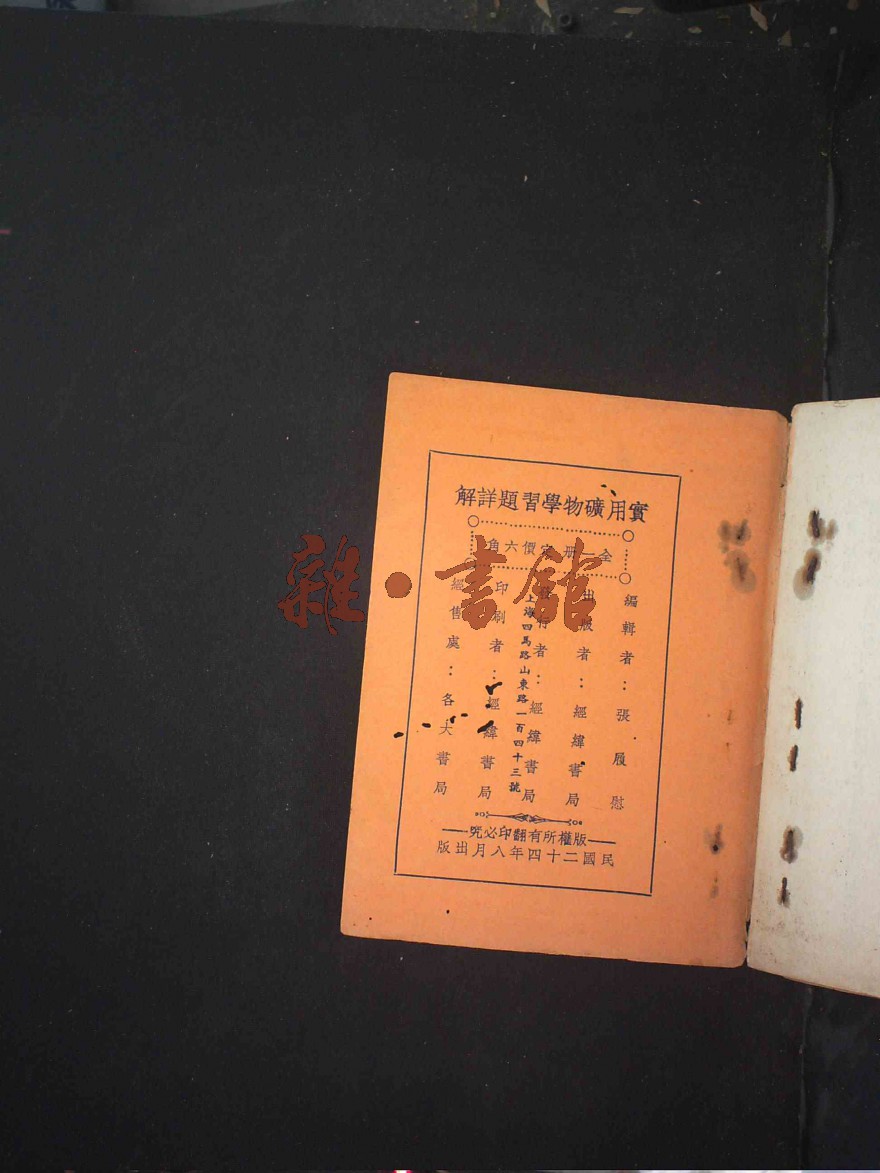 實用礦物學習題詳解
全一册 定價六角
編輯者：張履慰
出版者：經緯書局
發行者：經緯書局
上海四馬路山東路一百四十三號
印刷者：經緯書局
經售處：各大書局
版權所有翻印必究
民國二十四年八月出版
雜·書館